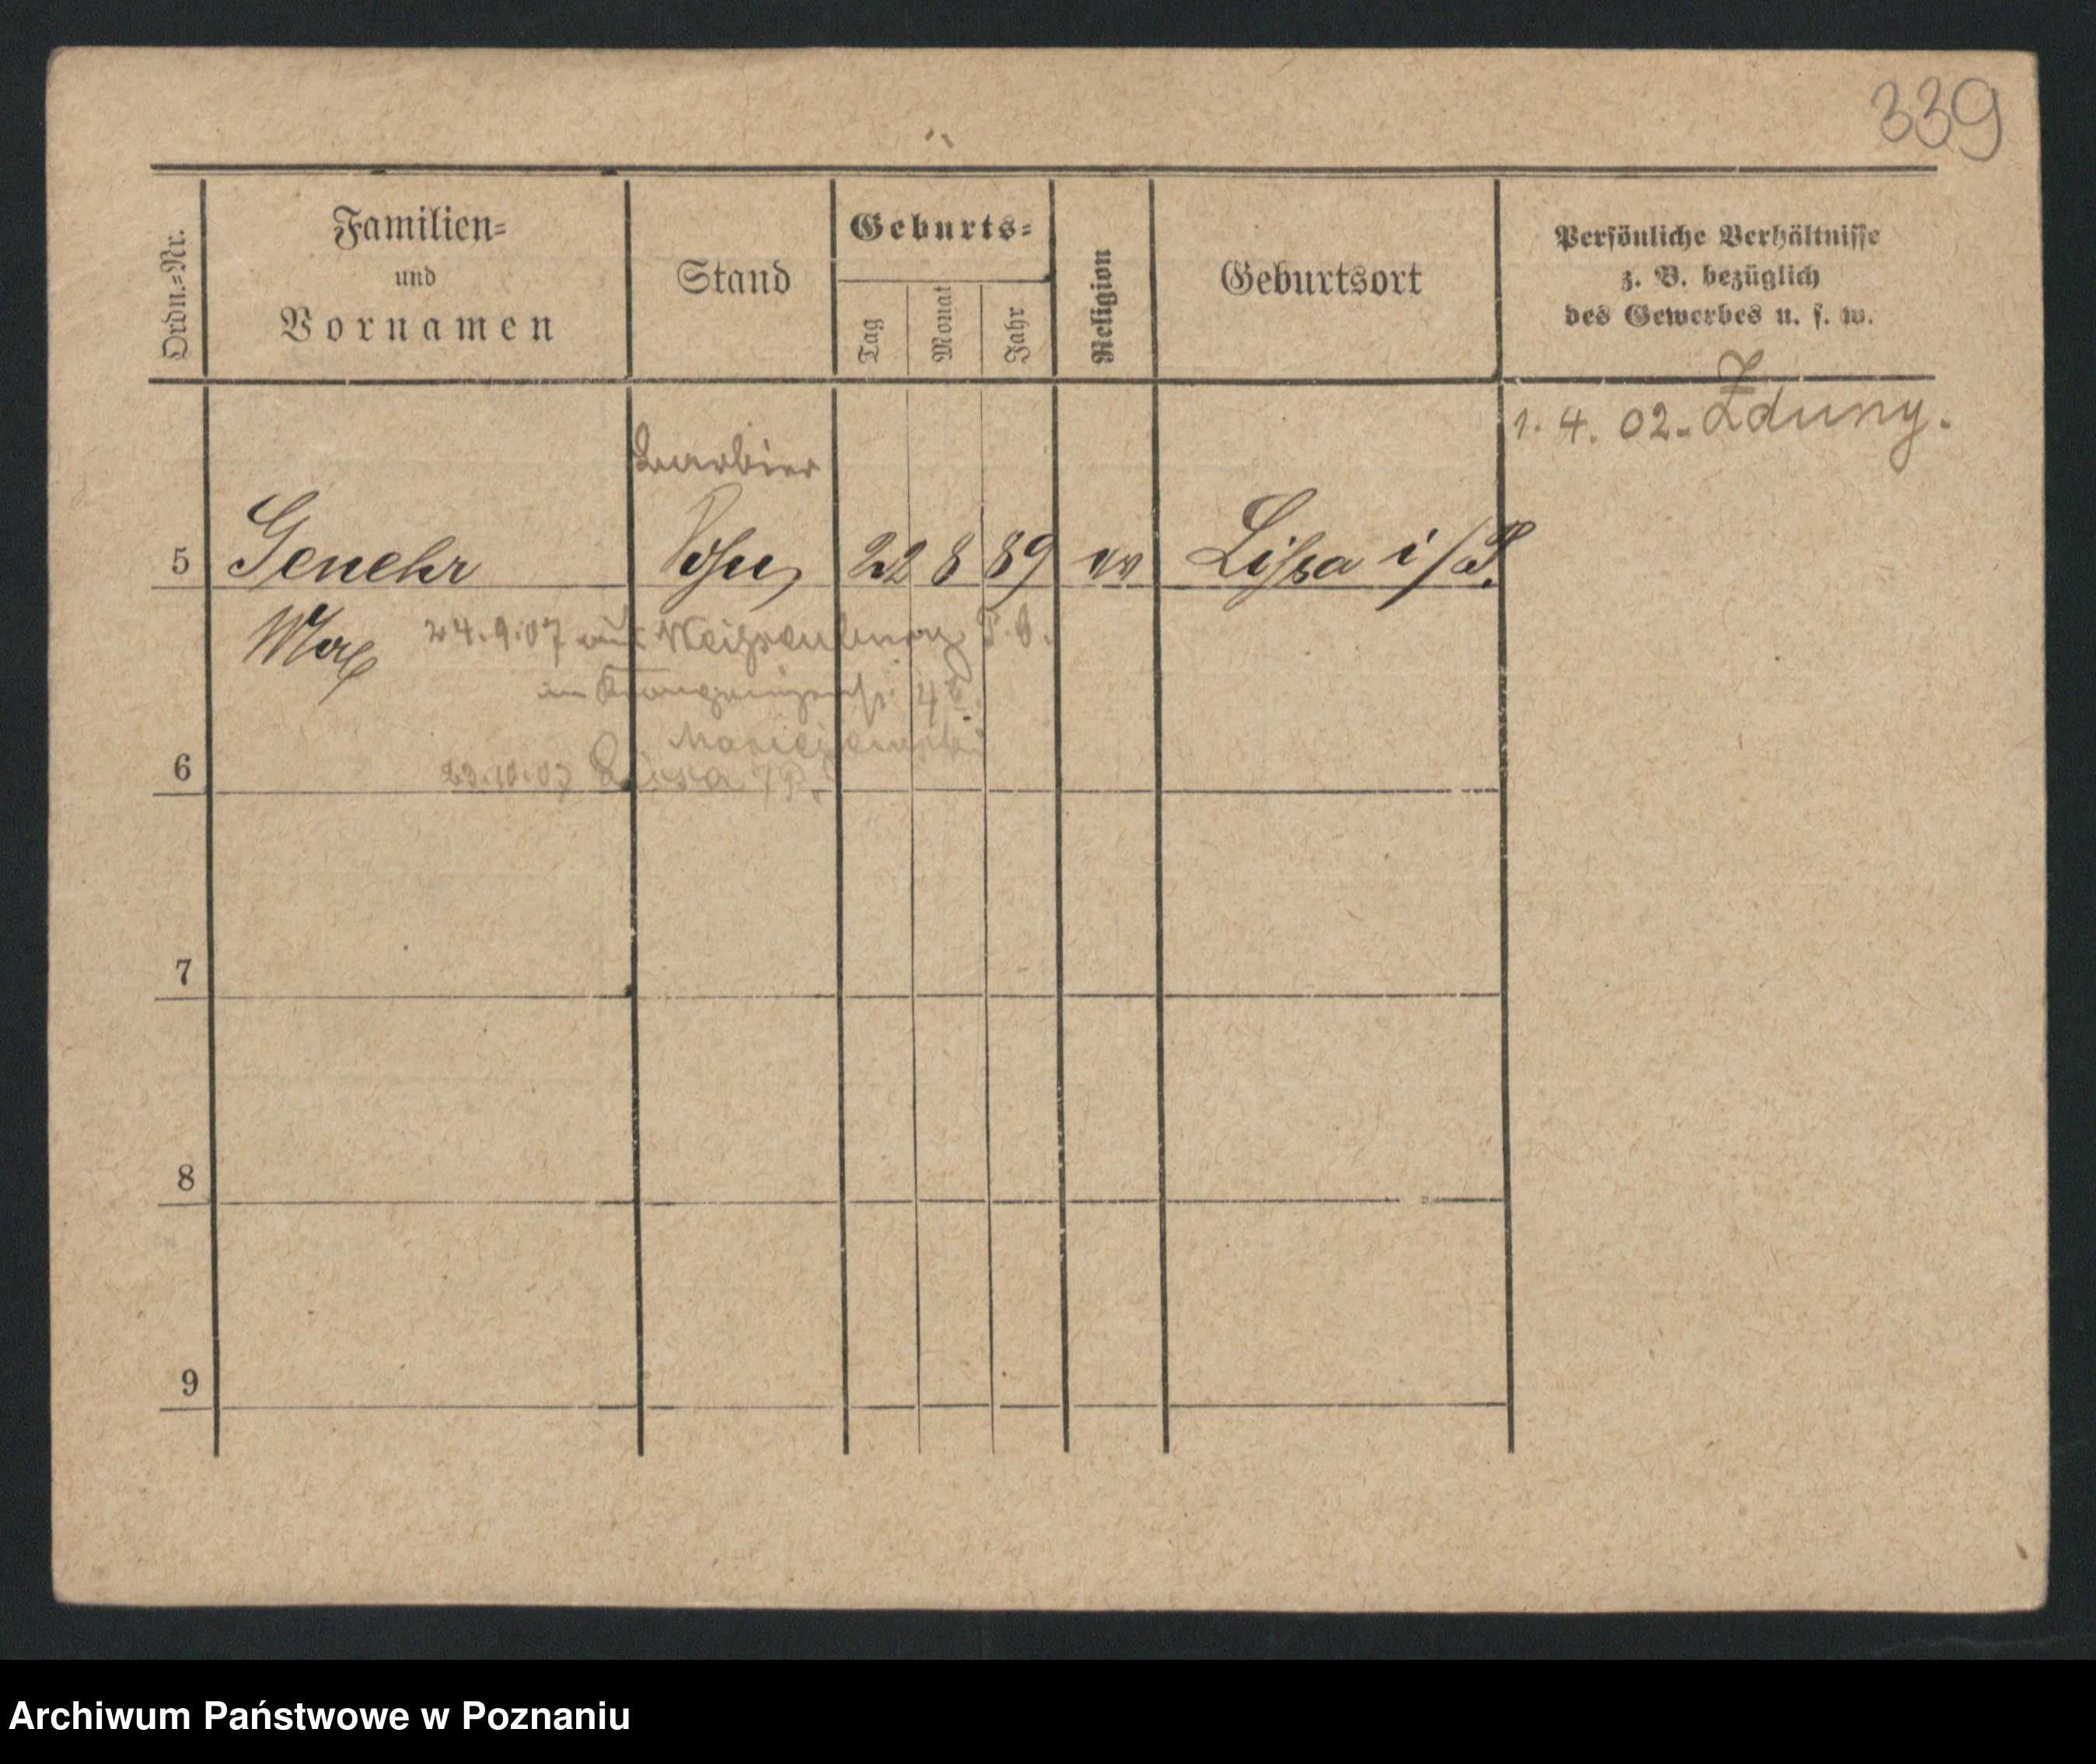 339
Ordn.=Nr.
Familien=
und
Vornamen
Stand
Geburts=
Tag
Monat
Jahr
Religion
Geburtsort
Persönliche Verhältnisse
z. B. bezüglich
des Gewerbes u. s. w.
1. 4. 02. Zduny.
Barbier
5 Genehr Sohn 22 8 89 ev Lissa i/P.
Max 24.9.07 aus
6
23.10.07 Lissa i/P.
7
8
9
Archiwum Państwowe w Poznaniu